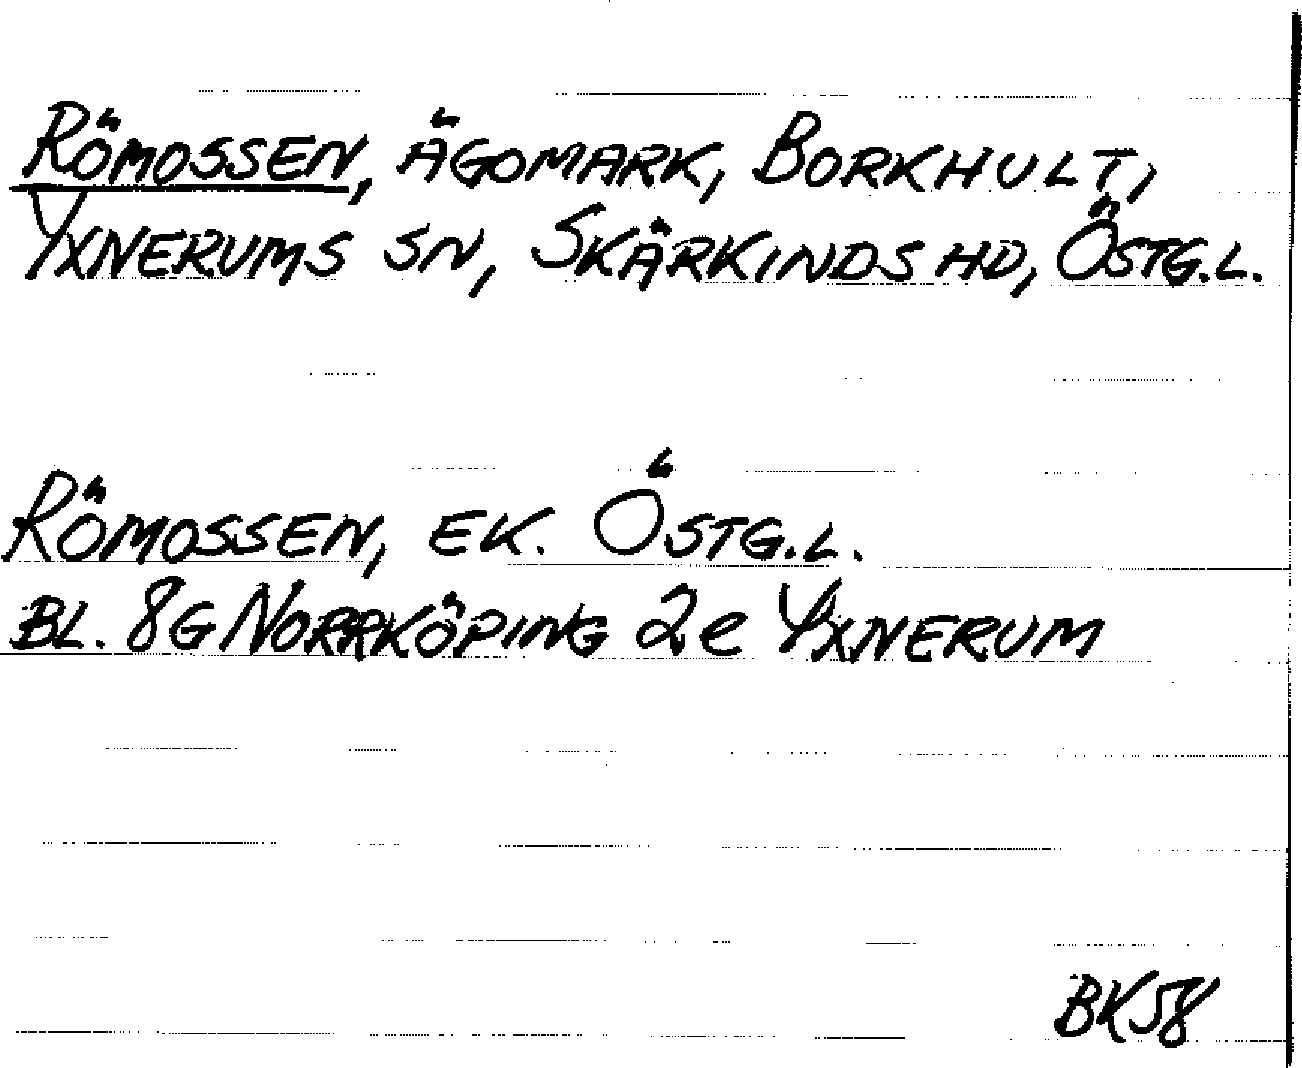 RÖMOSSEN, ÄGOMARK, BORKHULT,
YXNERUMS SN, SKÄRKINDS HD, ÖSTG.L.
RÖMOSSEN, EK. ÖSTG.L.
BL. 8G NORRKÖPING 2e YXNERUM
BK58